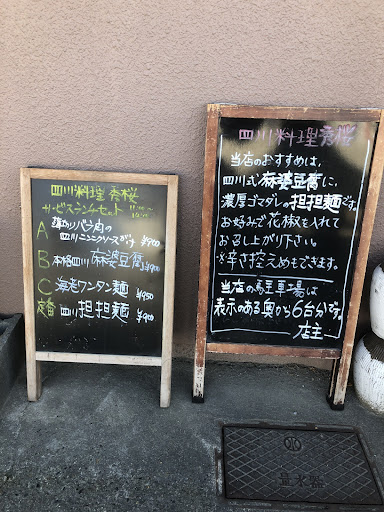 四川料理 秀桜
サービスランチセット
A 豚バラ肉の
四川ニンニクソースがけ ¥900
B 本格四川 麻婆豆腐 ¥900
C 海老ワンタン麺 ¥950
定番 四川 担担麺 ¥900
四川料理 秀桜
当店のおすすめは、
四川式麻婆豆腐に、
濃厚ゴマダレの担担麺です。
お好みで花椒を入れて
お召し上がり下さい。
※辛さ控えめもできます。
当店の駐車場は
表示のある奥から6台分です。
店主
量水器